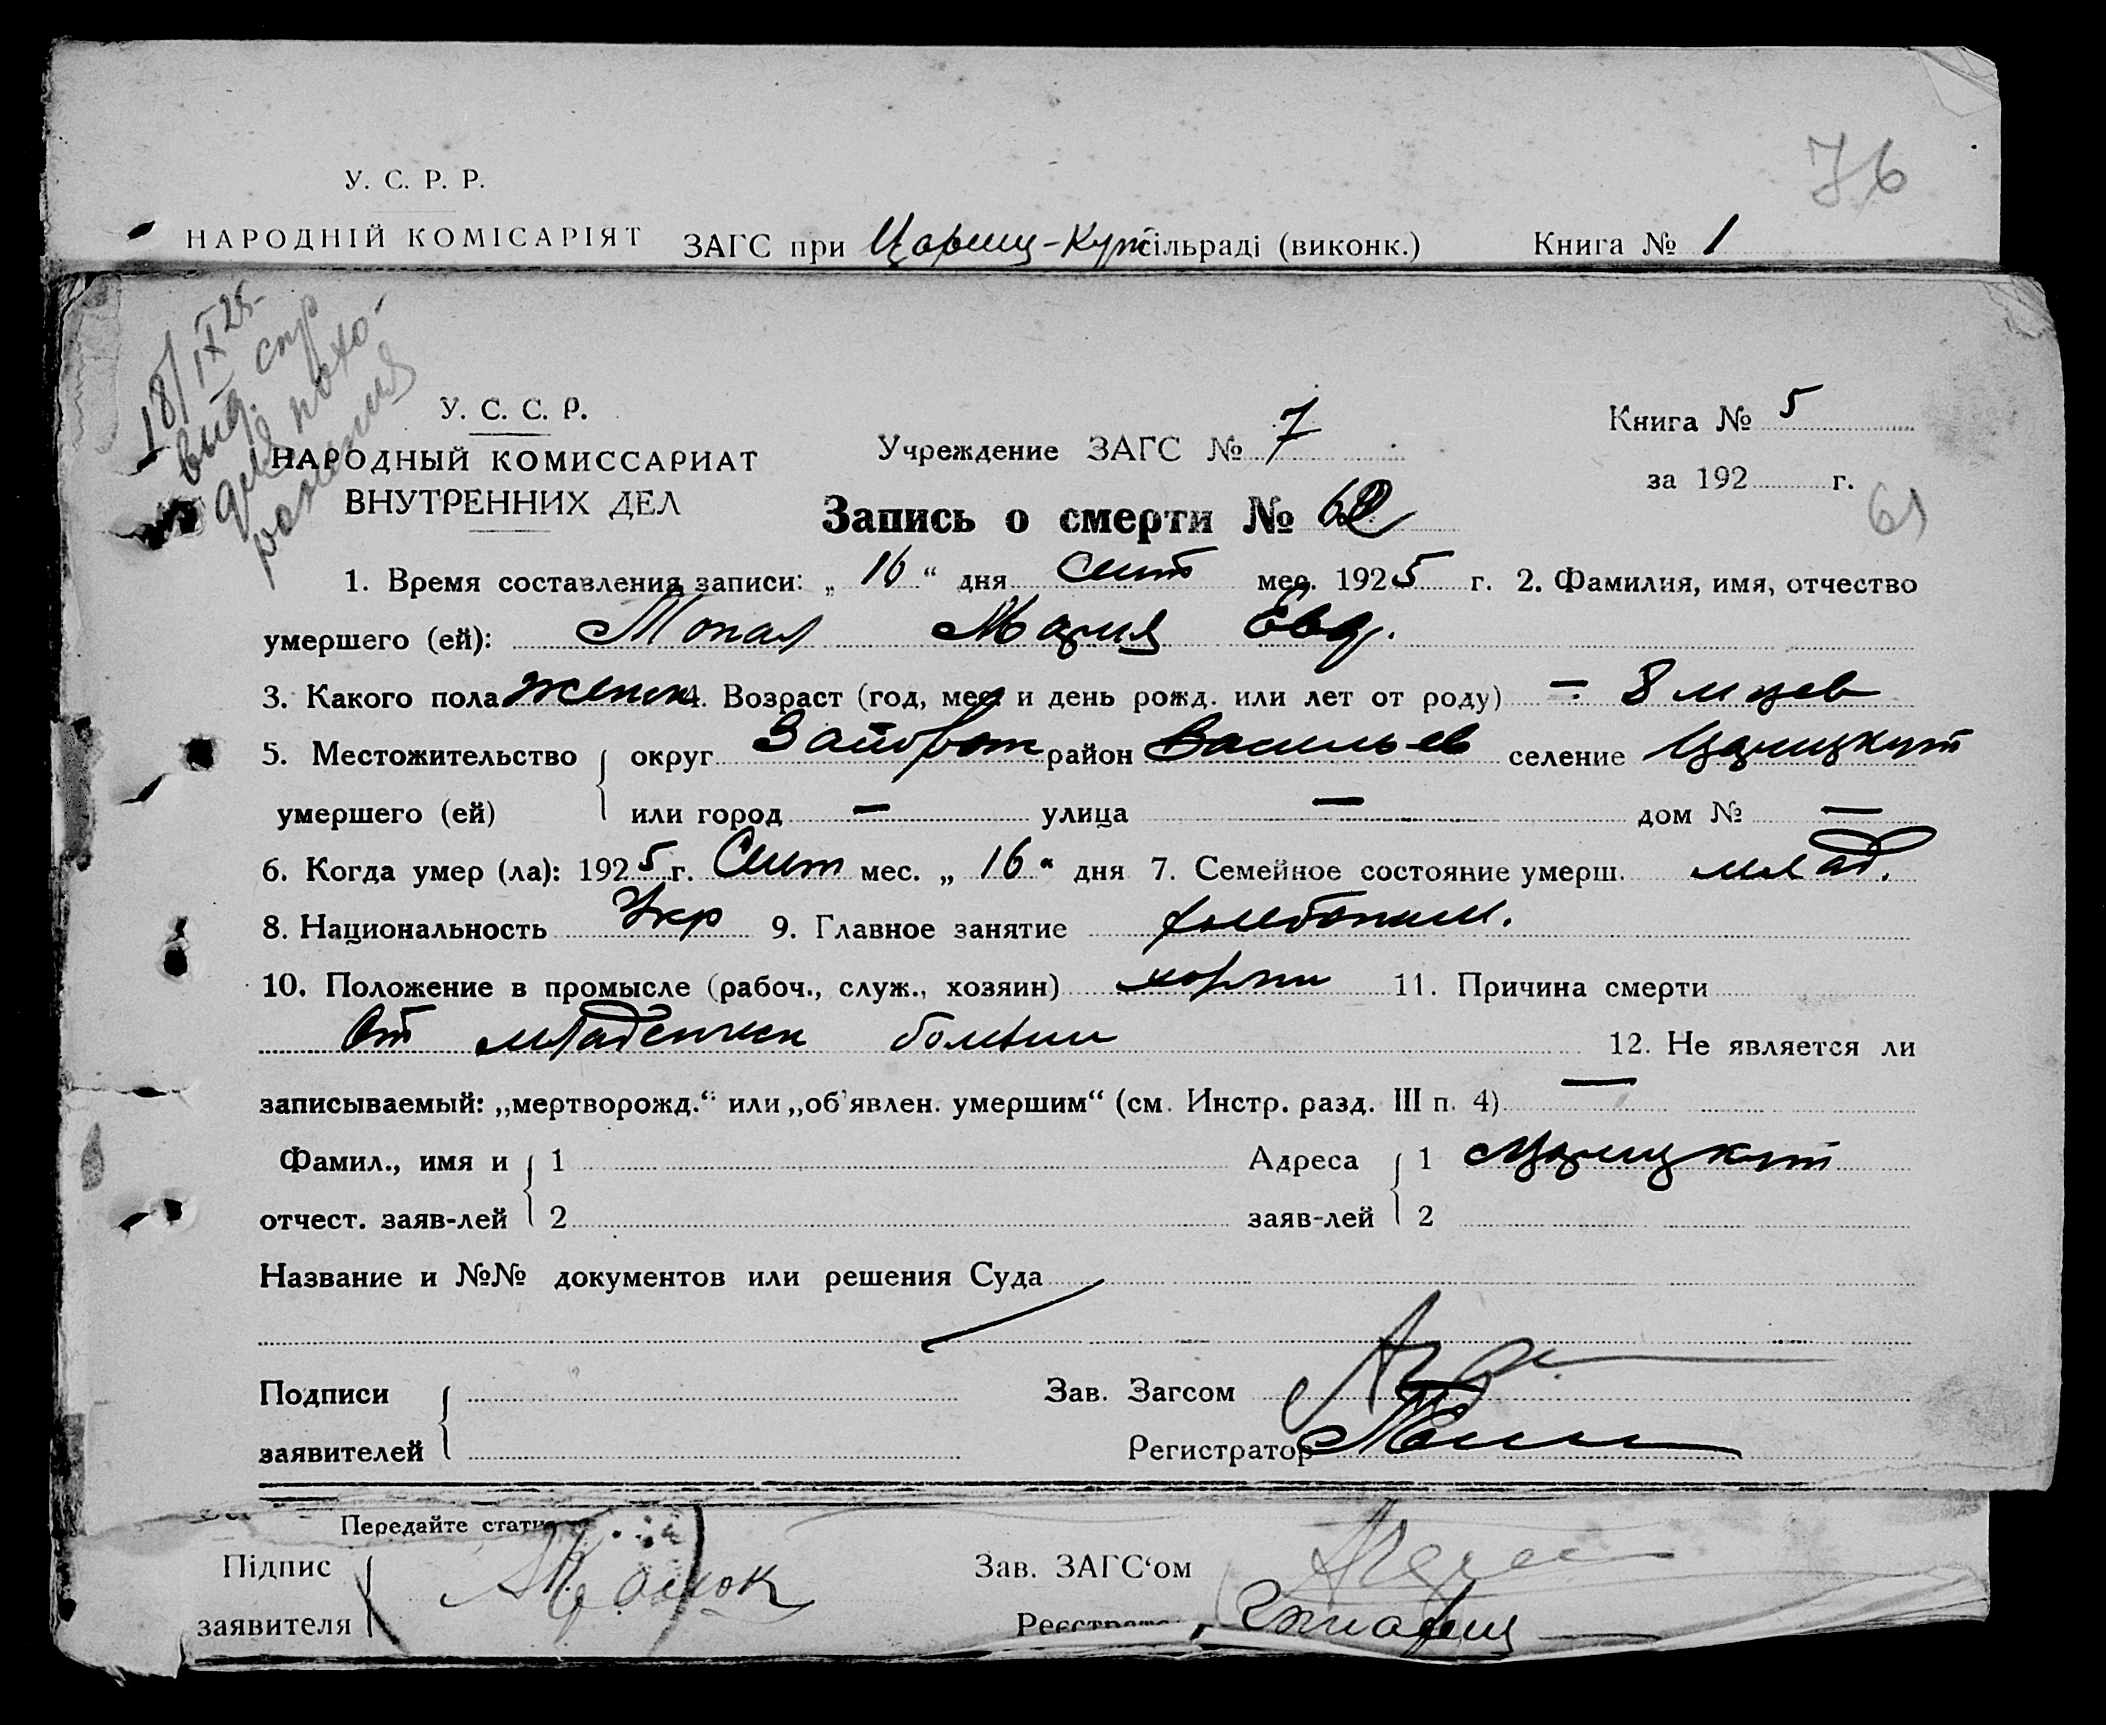 76
У. С. Р. Р.
НАРОДНІЙ КОМІСАРІЯТ ЗАГС при Цариц-Кут сільраді (виконк.) Книга № 1
18/IX 25
выд. спр
для похо-
ронения
У. С. С. Р.
НАРОДНЫЙ КОМИССАРИАТ
ВНУТРЕННИХ ДЕЛ
Учреждение ЗАГС № 7
Книга № 5
за 192 г.
61
Запись о смерти № 62
1. Время составления записи: „ 16 “ дня сент мес. 1925 г. 2. Фамилия, имя, отчество
умершего (ей): Мария Евд.
3. Какого пола женск 4. Возраст (год, мес и день рожд. или лет от роду) — 8 м цев
5. Местожительство округ Запорож район Васильев селение Царицкут
умершего (ей) или город — улица — дом № —
6. Когда умер (ла): 1925 г. Сент мес. „ 16 “ дня 7. Семейное состояние умерш. млад.
8. Национальность Укр 9. Главное занятие хлебопаш.
10. Положение в промысле (рабоч., служ., хозяин) 11. Причина смерти
От младенческ болезни 12. Не является ли
записываемый: „мертворожд.“ или „об'явлен. умершим“ (см. Инстр. разд. III п. 4) —
Фамил., имя и 1 Адреса 1 Царицкут
отчест. заяв-лей 2 заяв-лей 2
Название и №№ документов или решения Суда
Подписи Зав. Загсом
заявителей Регистратор
Передайте стати
Підпис Зав. ЗАГС‘ом
заявителя Реєстрато